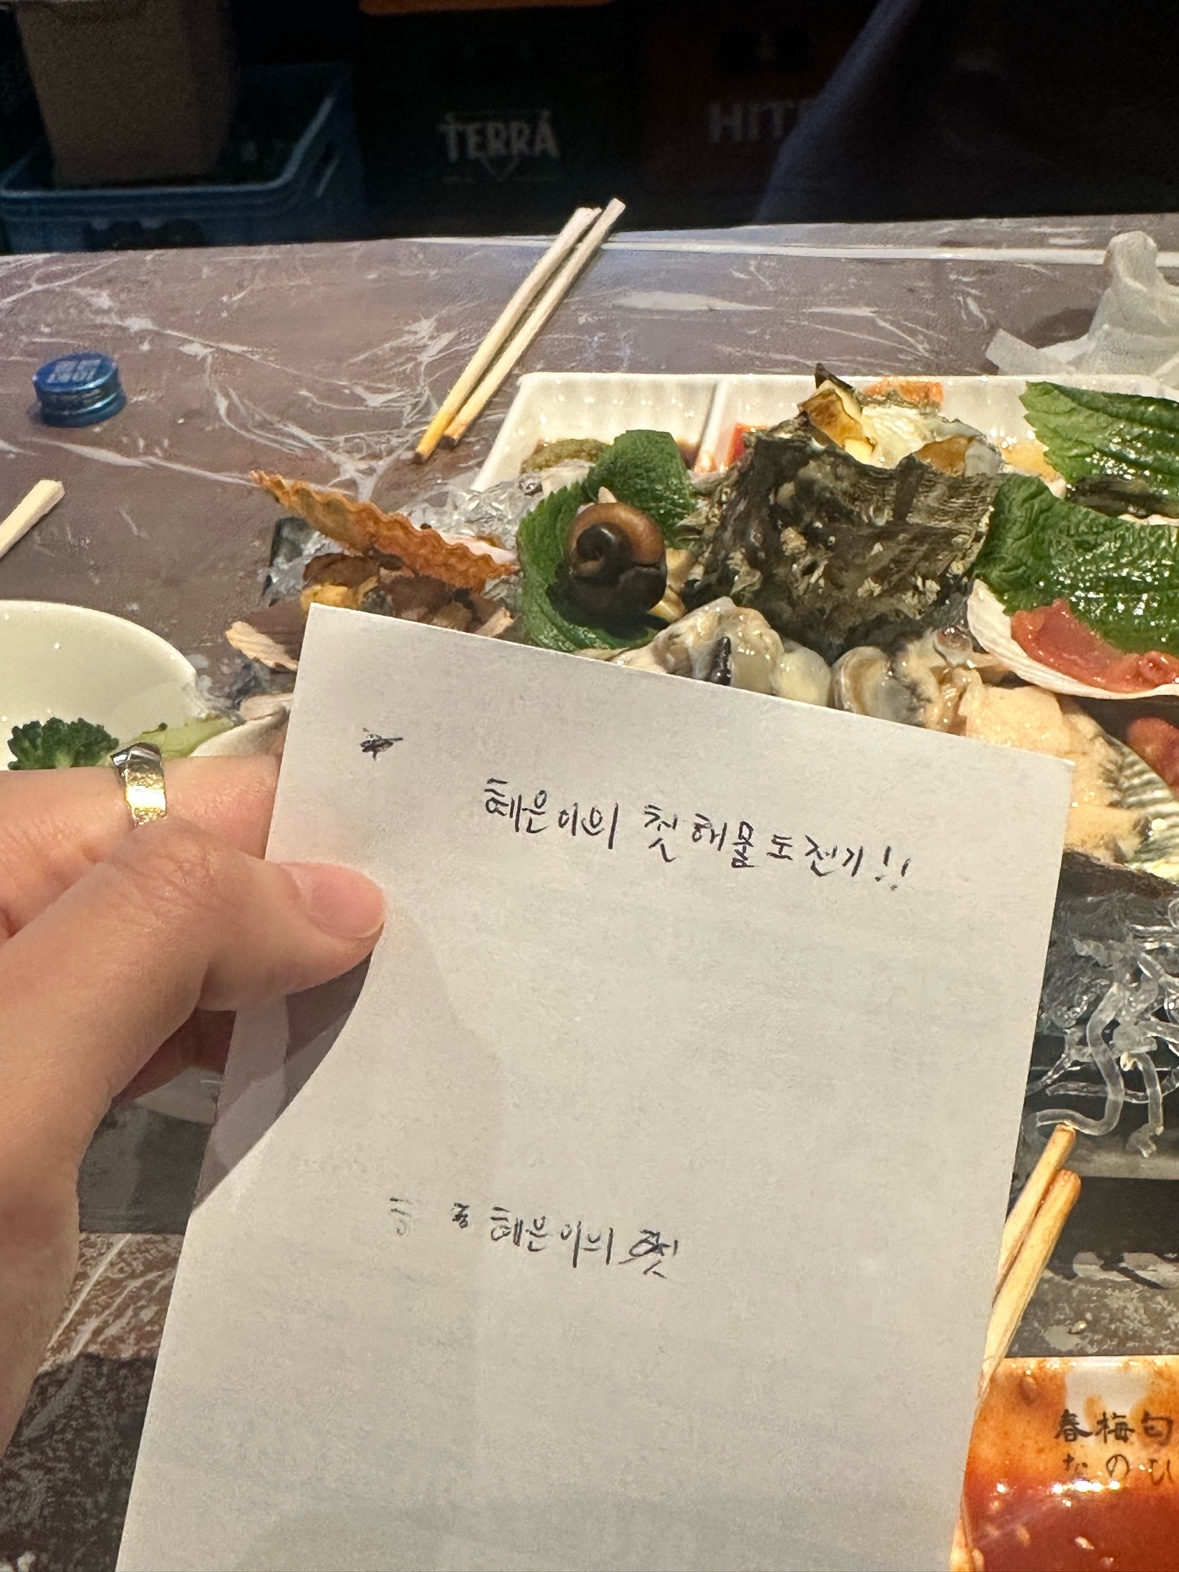 TERRA
HIT
혜은이의 첫 해물 도전기!!
혜은이의 첫
春梅匂
なのひ